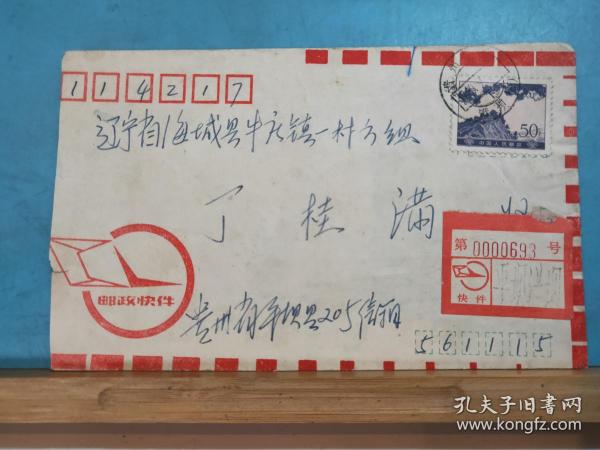 114217
辽宁省海城县牛庄镇一村六组
50分
中国人民邮政
丁桂满 收
第 0000693 号
快件
邮政快件
贵州省平坝县205信箱
561115
孔夫子旧书网
www.kongfz.com